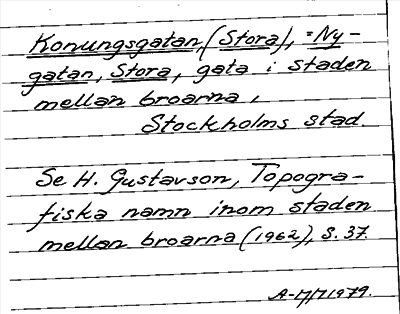 Konungsgatan, (Stora), = Ny-
gatan, Stora, gata i staden
mellan broarna,
Stockholms stad.
Se H. Gustavson, Topogra-
fiska namn inom staden
mellan broarna (1962), s. 37.
1979.